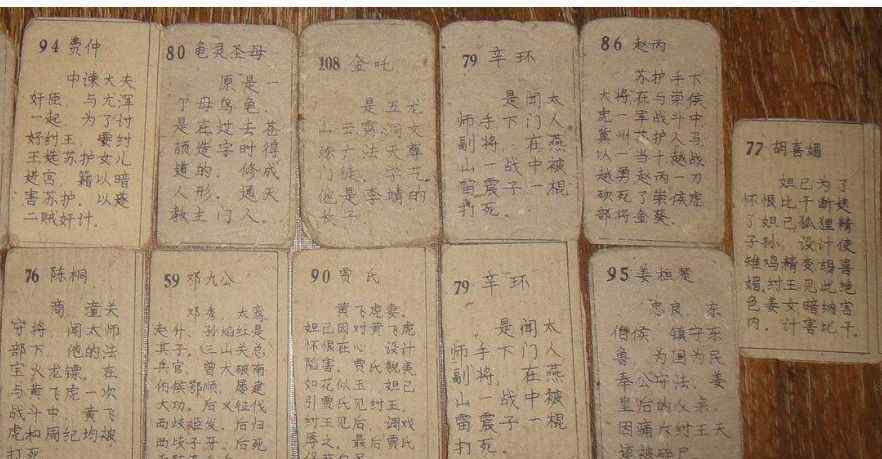 94 费仲
中谏大夫
奸臣，与尤浑
一起，为了讨
好纣王，要纣
王选苏护女儿
进宫，籍以暗
害苏护，以遂
二贼奸计。
80 龟灵圣母
原是一
了母乌龟，
是在过去苍
颉造字时得
道的，修成
人形，通天
教主门人。
108 金吒
是五龙
山云霄洞文
殊广法天尊
门徒，
他是李靖的
长子
79 辛环
是闻太
师手下门人
副将，在燕
山一战中被
雷震子一棍
打死。
86 赵丙
苏护手下
大将，在与崇侯
虎军
冀州战护
以一当十
越勇，赵丙一刀
砍死了崇侯虎
部将金葵。
77 胡喜媚
妲己为了
怀恨比干断送
了妲己狐狸精
子孙，设计使
雉鸡精变胡喜
媚，纣王见此绝
色美女暗纳宫
内，计害比干。
76 陈桐
商，潼关
守将，闻太师
部下，他的法
宝火龙镖，在
与黄飞虎一次
战斗中，黄飞
虎和周纪均被
打死
59 邓九公
邓秀，太鸾，
赵升，孙焰红是
其子。三山关总
兵官，曾大破南
伯侯鄂顺，屡建
大功。后又征伐
西岐姬发，后归
西岐子牙，后死
90 贾氏
黄飞虎妻，
妲己因对黄飞虎
怀恨在心，设计
陷害，贾氏貌美
如花似玉，妲己
引贾氏见纣王，
纣王见后，调戏
辱之，最后贾氏
79 辛环
是闻太
师手下门人
副将，在燕
山一战中被
雷震子一棍
打死。
95 姜桓楚
忠良，东
伯侯，镇守东
鲁，为国为民
奉公守法，姜
皇后的父亲，
因痛斥纣王无